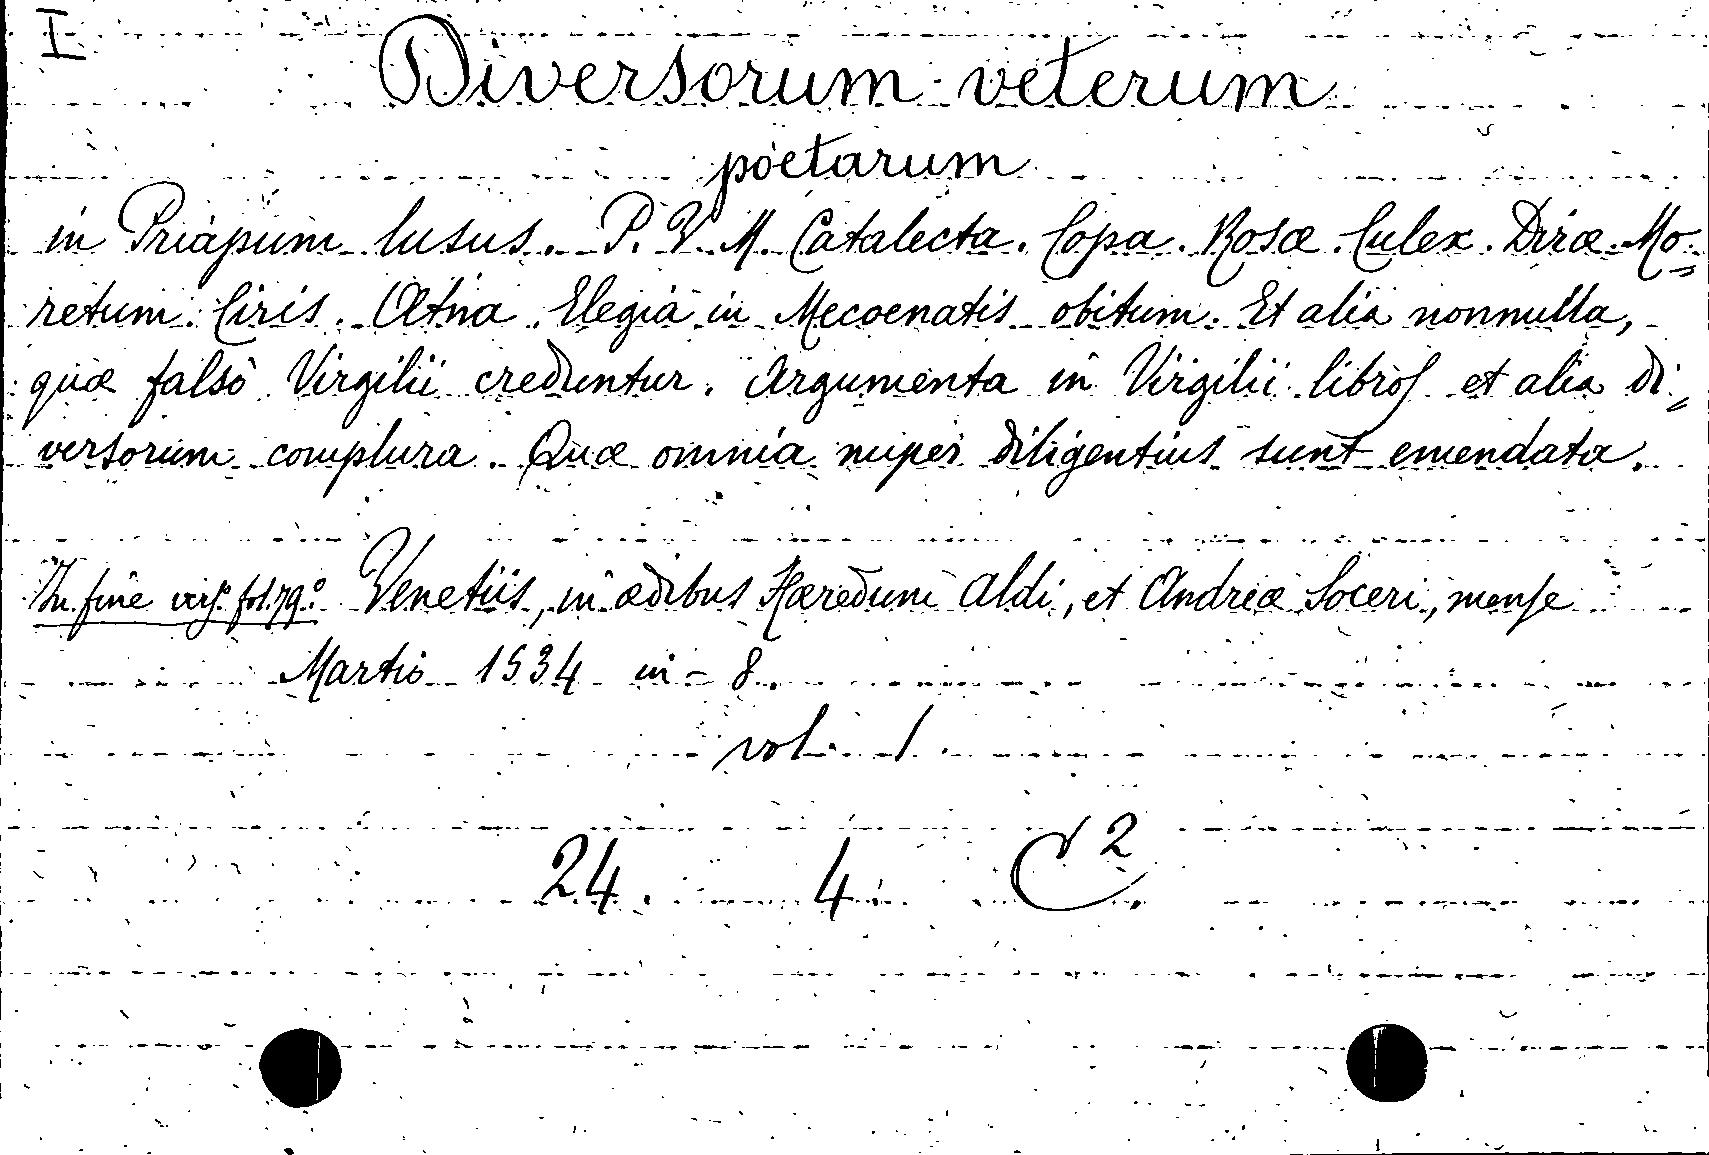 I
Diversorum veterum
poetarum
in Priapum lusus. P. V. M. Catalecta. Copa. Rosæ. Culex. Diræ. Mo=
retum. Ciris. Ætna. Elegia in Mecoenatis obitum. Et alia nonnulla,
quæ falso Virgilii creduntur. Argumenta in Virgilii libros et alia di=
versorum complura. Quæ omnia nuper diligentius sunt emendata.
In fine vers. fol. 79: Venetiis, in ædibus Hæredum Aldi, et Andreæ Soceri, mense
Martio 1534 in-8.
vol. 1
24. 4. C².